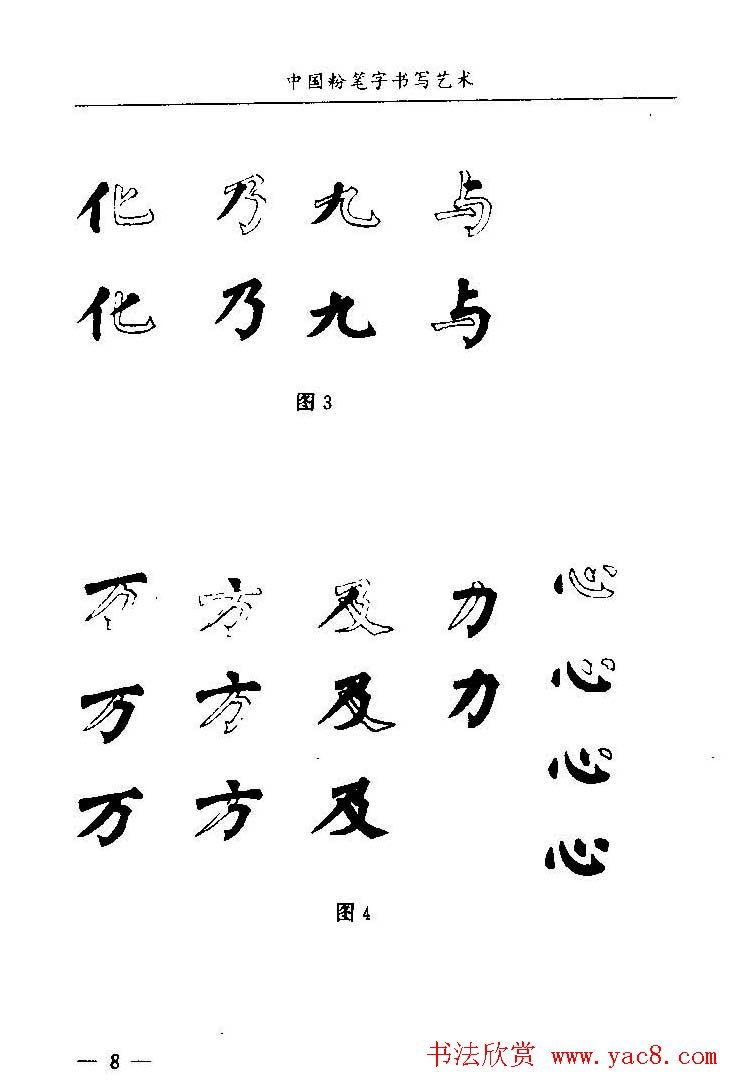 中国粉笔字书写艺术
化 乃 九 与
化 乃 九 与
图 3
万 方 及 力 心
万 方 及 力 心
万 方 及 心
心
图 4
— 8 —
书法欣赏 www.yac8.com